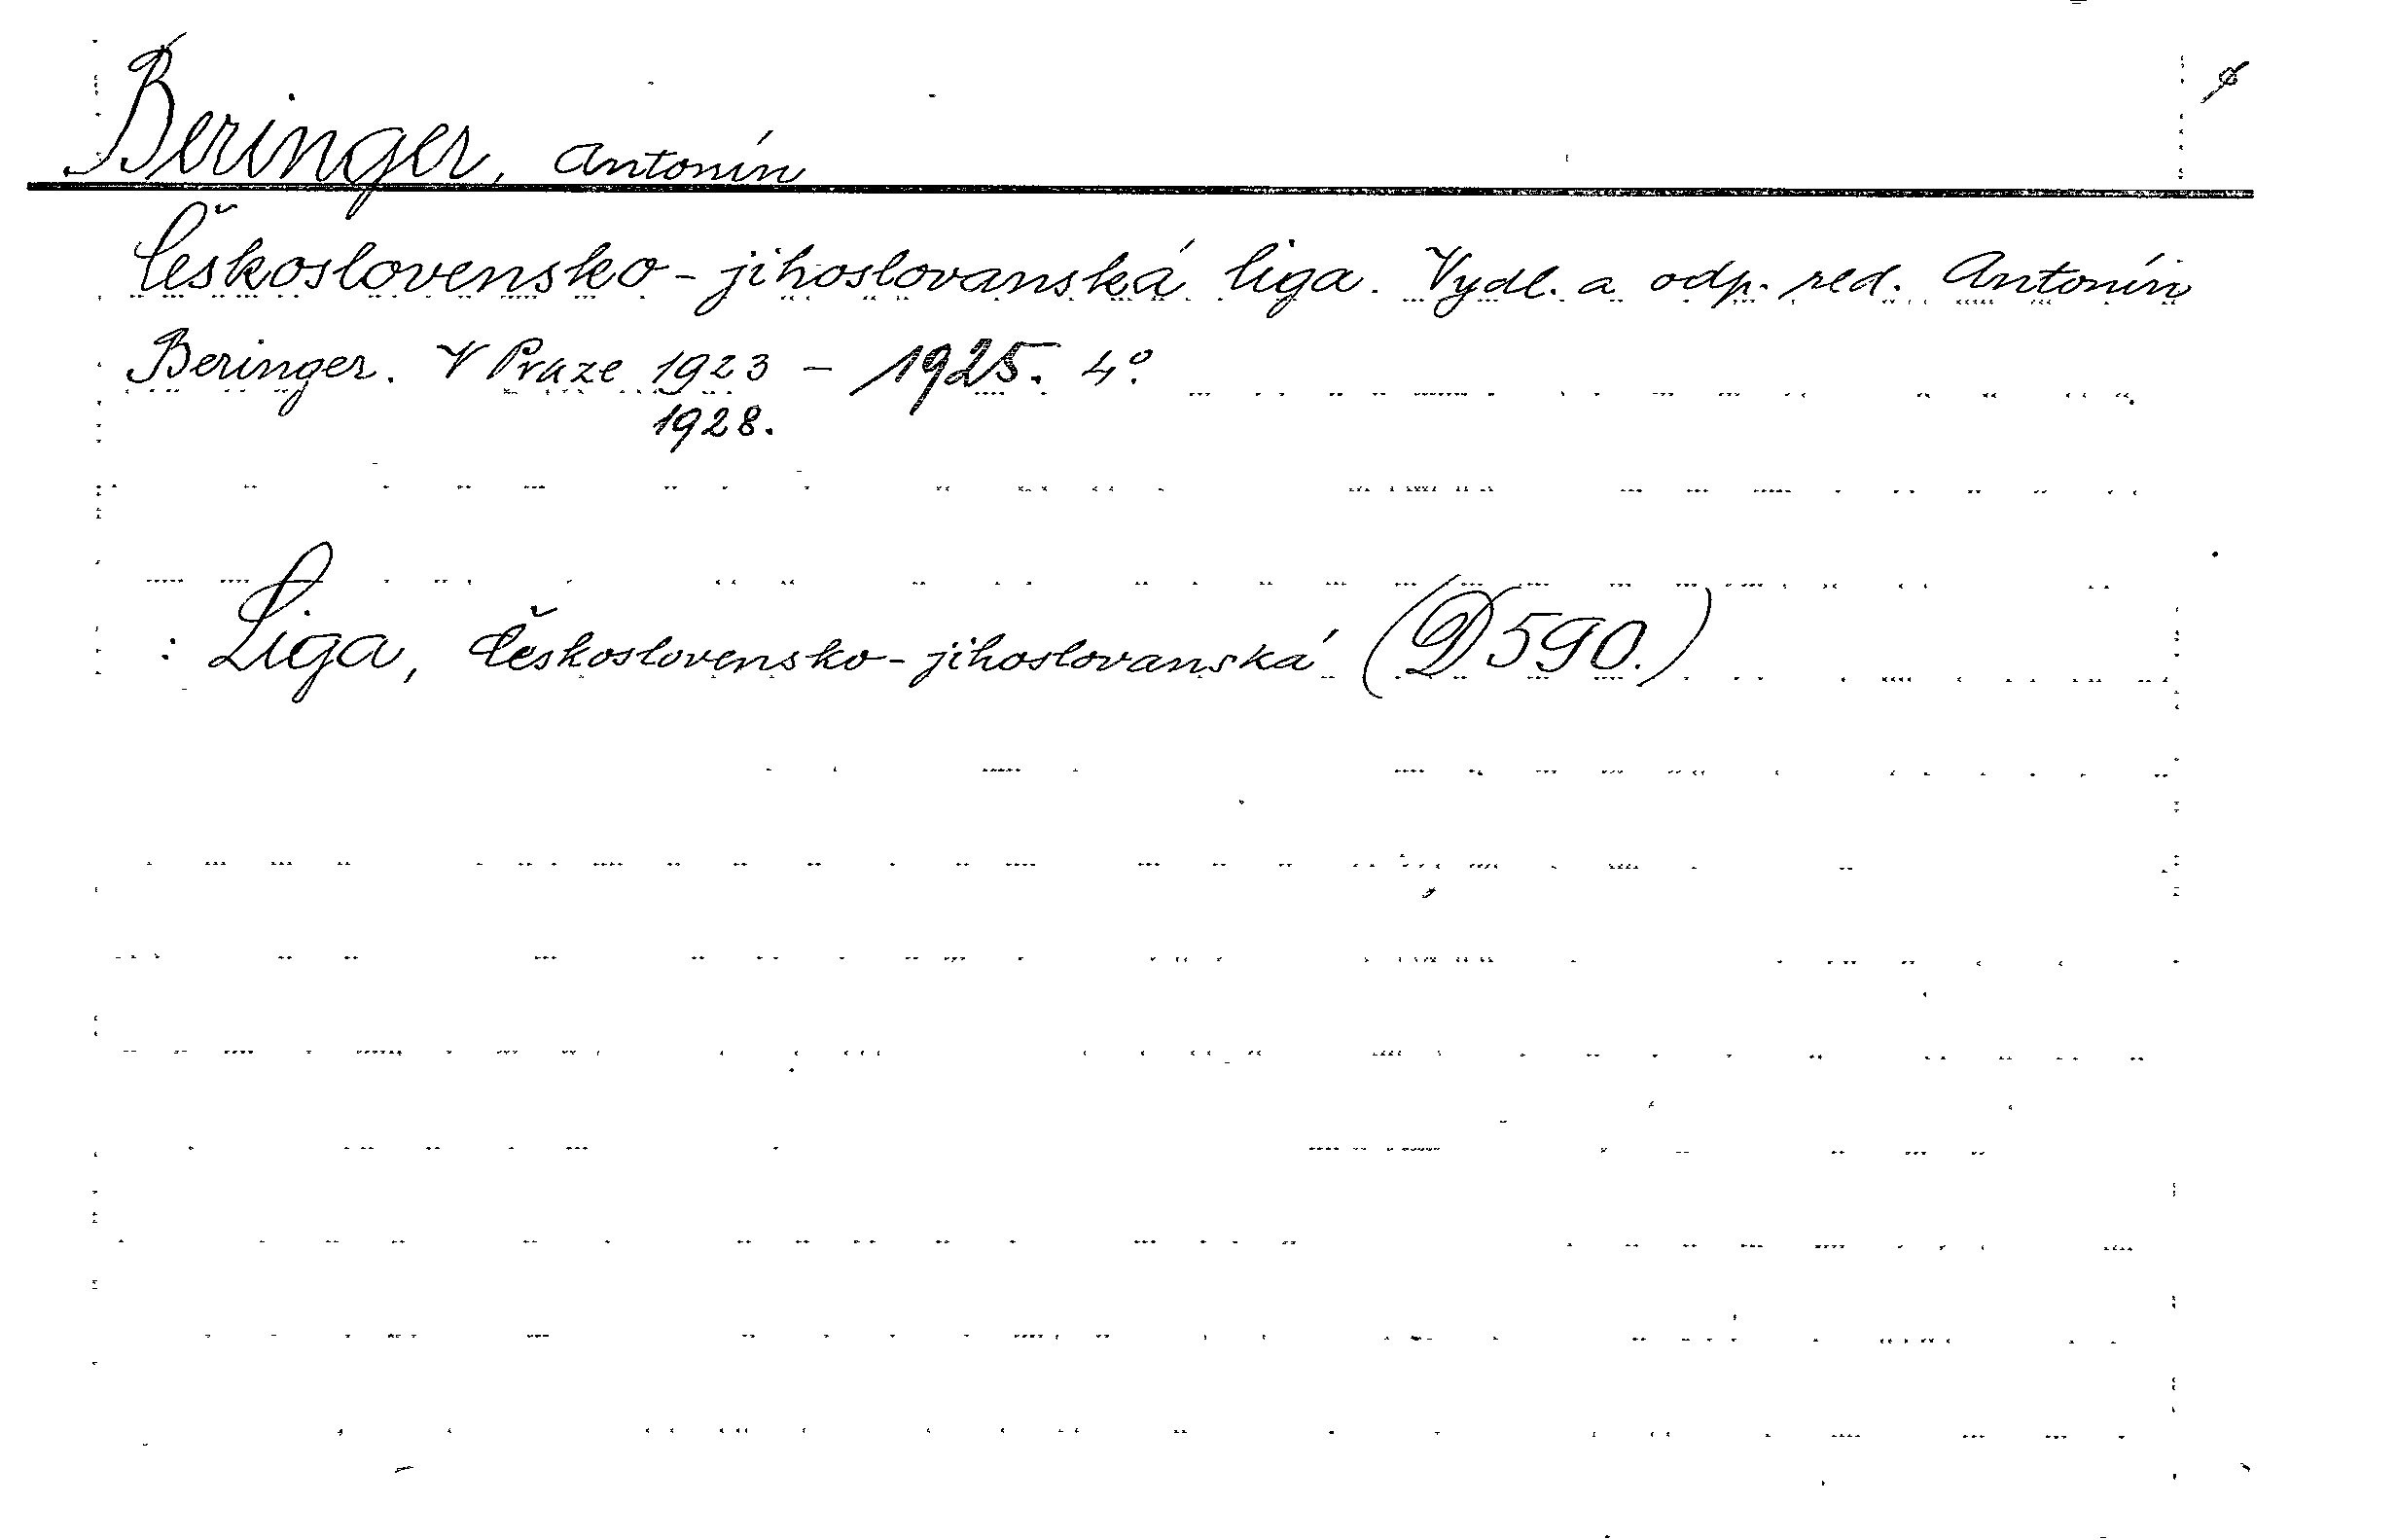 Beringer, Antonín
Československo-jihoslovanská liga. Vydl. a odp. red. Antonín
Beringer. V Praze 1923 - 1925. 4°.
1928.
: Liga, Československo-jihoslovanská (D 590.)